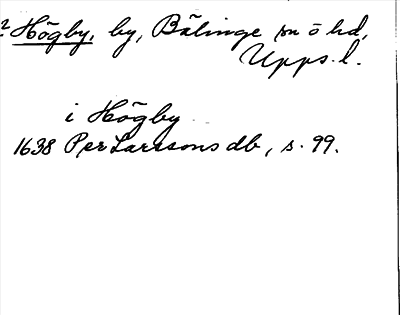 ? Högby, by, Bälinge sn o hd,
Upps. l.
i Högby
1638 Per Larssons db, s. 99.